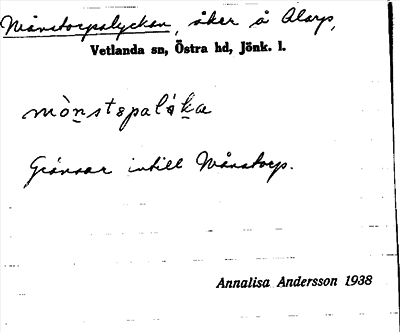 Månstorpalyckan, åker å Alarp,
Vetlanda sn, Östra hd, Jönk. l.
mò̱nstspaləḵa
Gränsar intill Månstorp.
Annalisa Andersson 1938